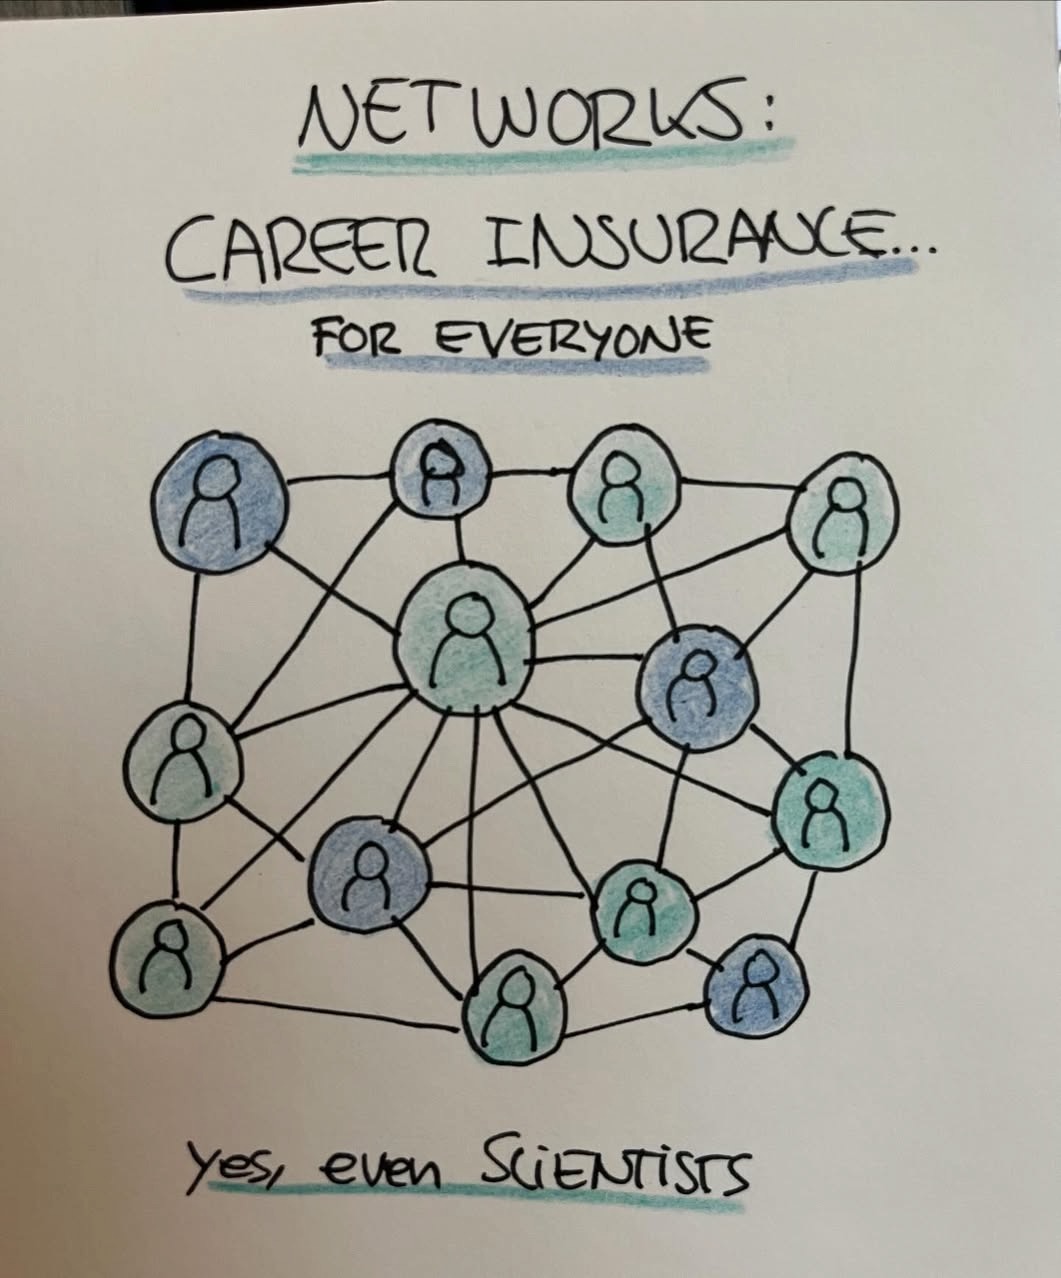 NETWORKS:
CAREER INSURANCE...
FOR EVERYONE
yes, even SCiENTiSTS